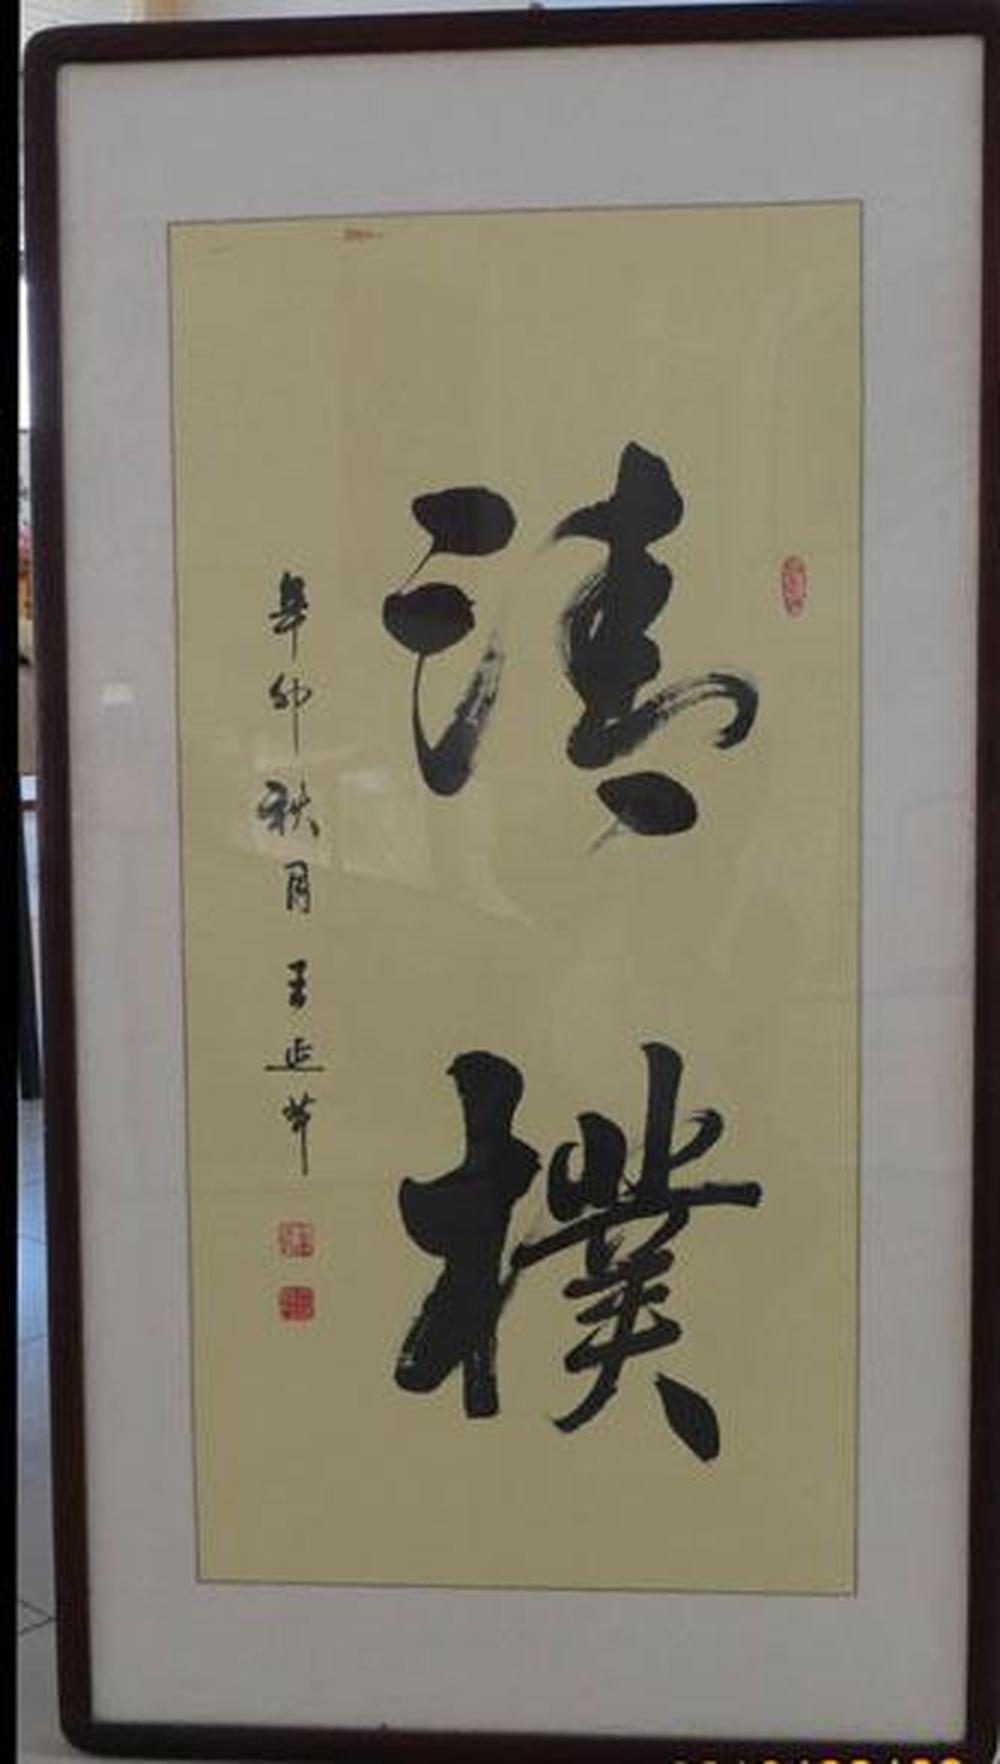 清樸
辛卯秋月 王延華